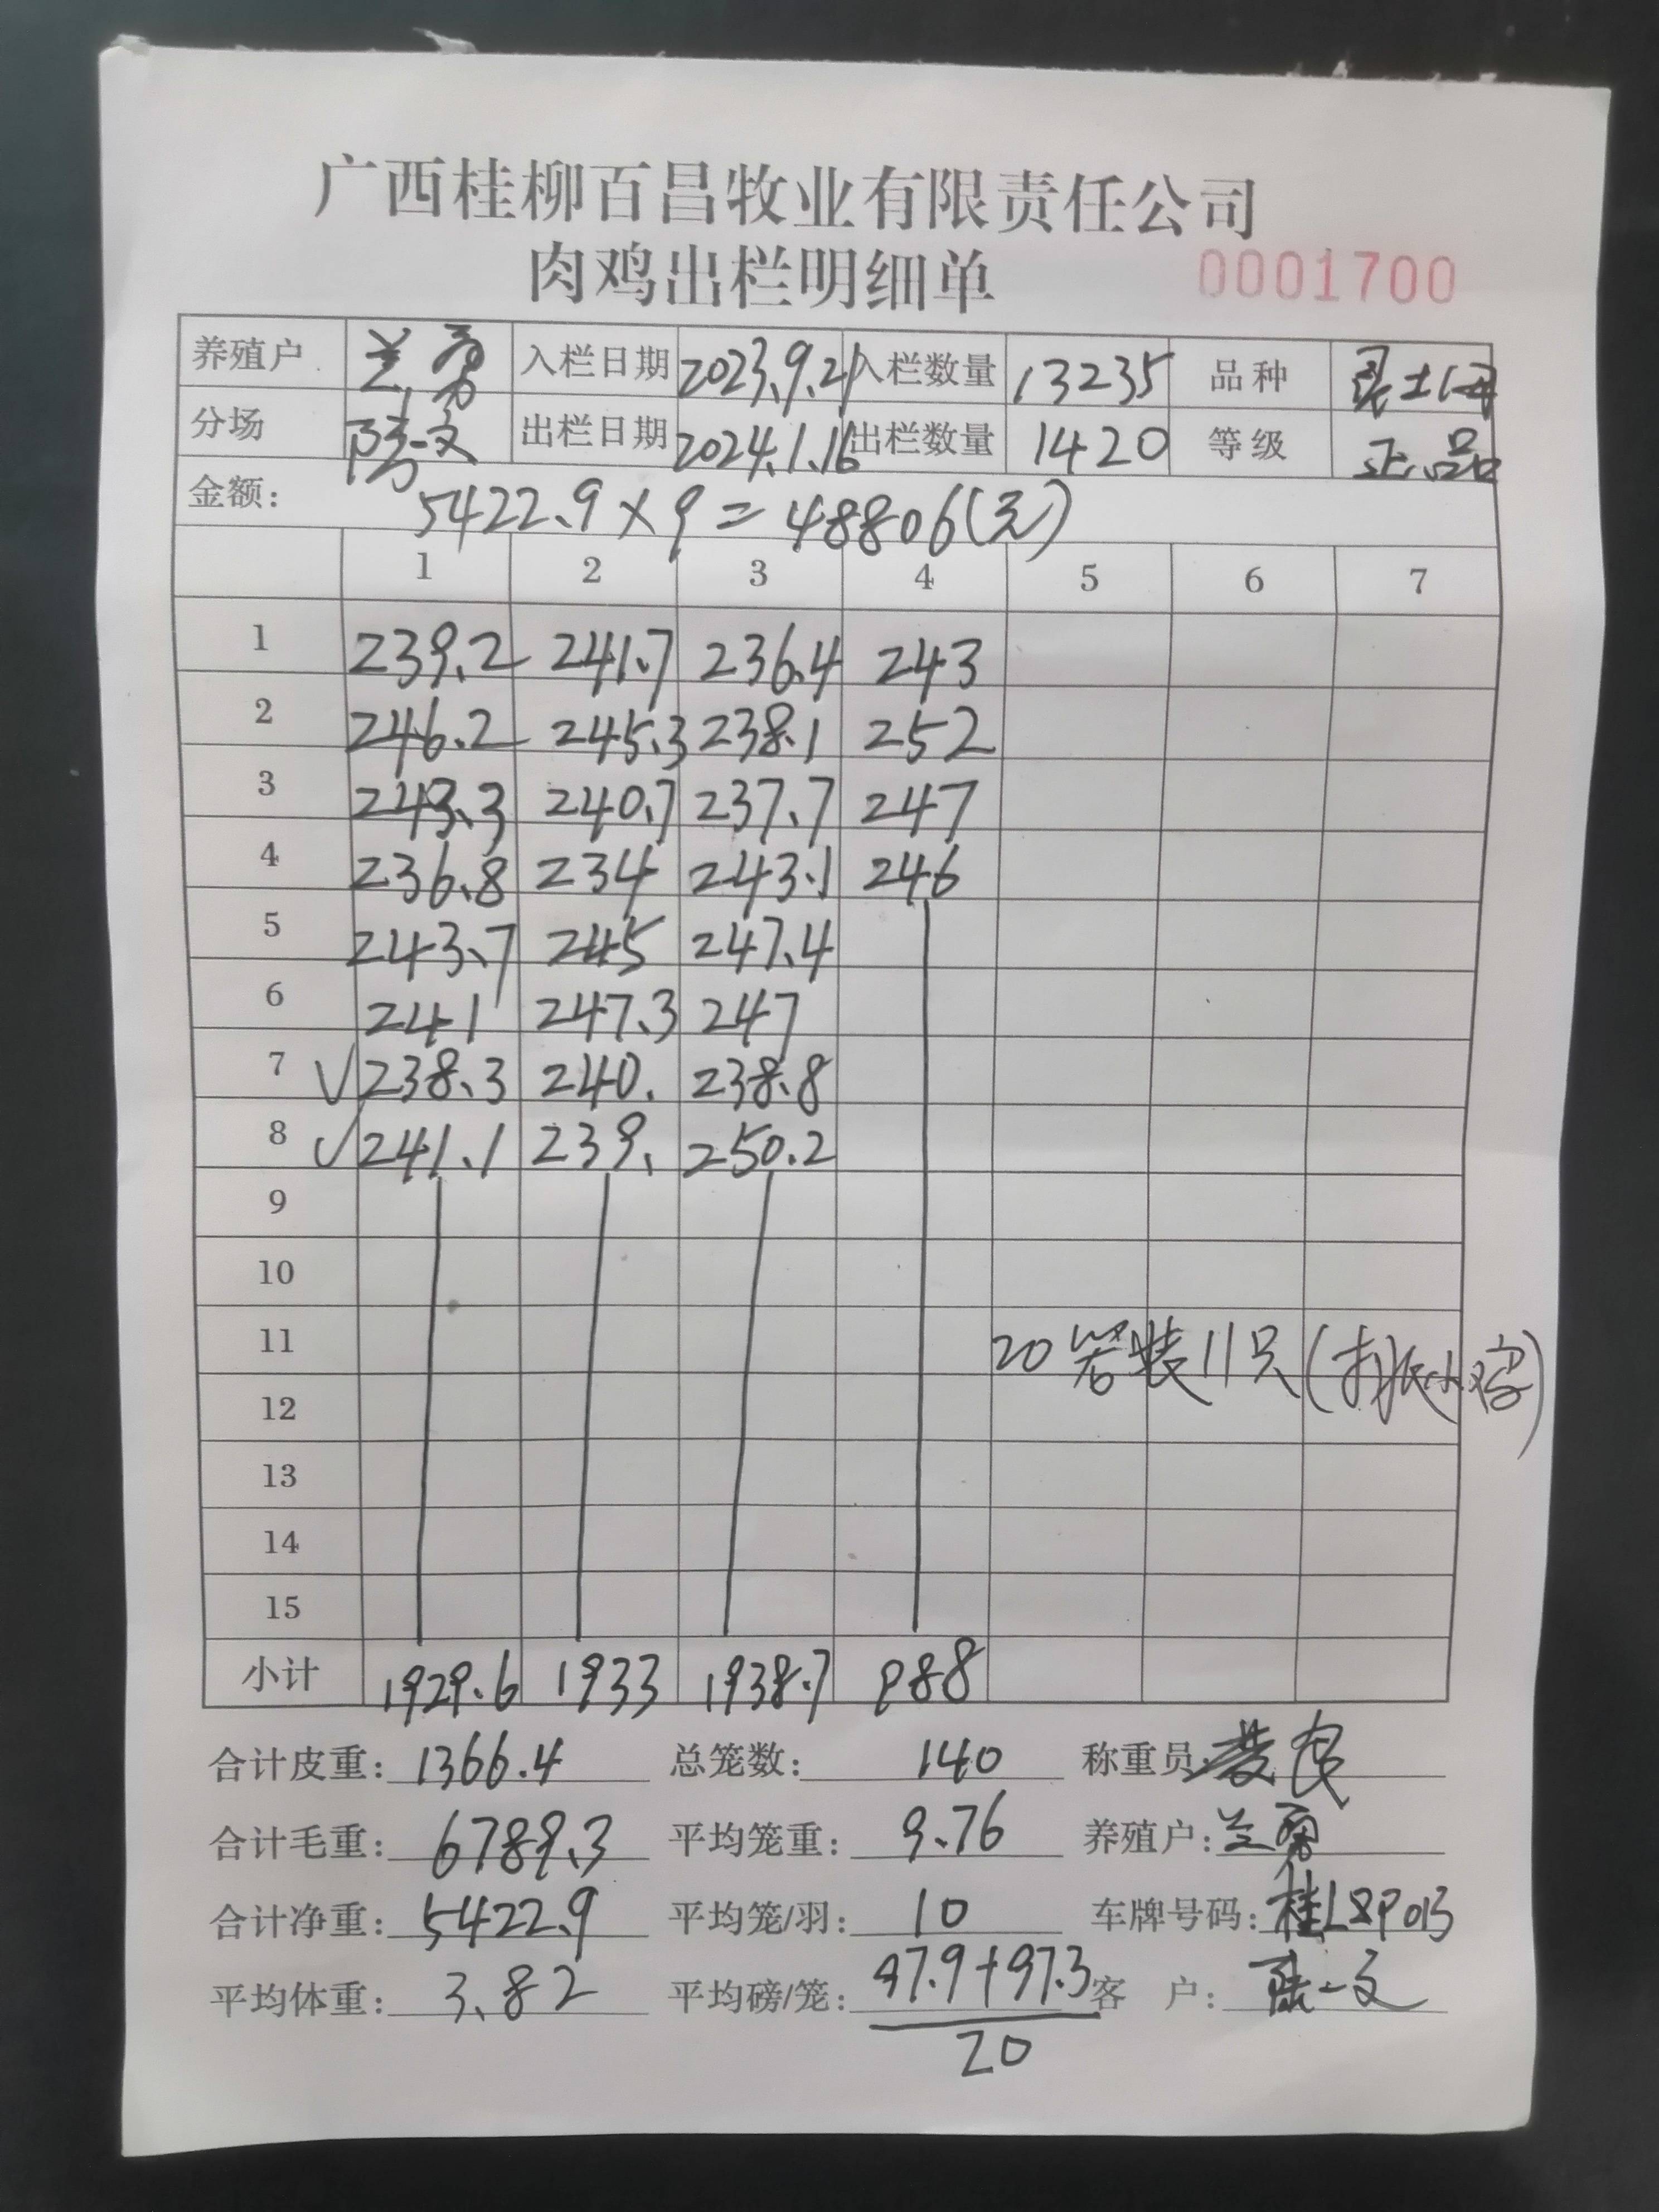 广西桂柳百昌牧业有限责任公司
肉鸡出栏明细单 0001700
养殖户 兰勇 入栏日期 2023.9.21 入栏数量 13235 品种 灵土一母
分场 出栏日期 2024.1.16 出栏数量 1420 等级 正品
金额: 5422.9×9=48806(元)
1 2 3 4 5 6 7
1 239.2 241.7 236.4 243
2 246.2 245.3 238.1 252
3 243.3 240.7 237.7 247
4 236.8 234 243.1 246
5 243.7 245 247.4
6 241 247.3 247
7 √238.3 240. 238.8
8 √241.1 239. 250.2
9
10
11 20笼装11只(小鸡)
12
13
14
15
小计 1929.6 1933 1938.7 988
合计皮重: 1366.4 总笼数: 140 称重员:
合计毛重: 6789.3 平均笼重: 9.76 养殖户: 兰勇
合计净重: 5422.9 平均笼/羽: 10 车牌号码: 桂L8P013
平均体重: 3.82 平均磅/笼: 97.9+97.3 客 户: 陆一文
20